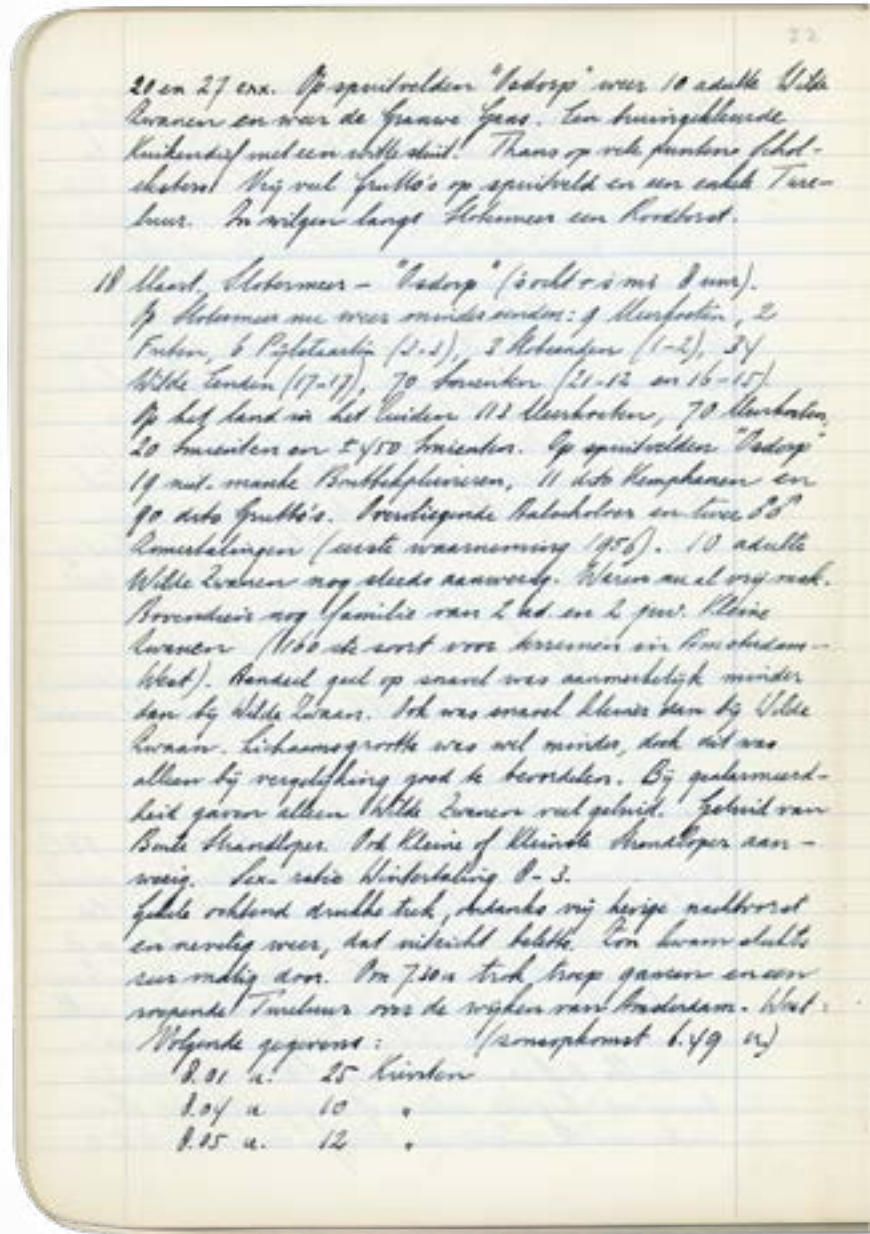 22
20 en 27 exx. Op spuitvelden "Osdorp" weer 10 adulte Wilde
Zwanen en weer de Grauwe Gans. Een bruingekleurde
Kuikendief met een witte stuit! Thans op vele punten Schol-
eksters! Vrij veel Grutto's op spuitveld en een enkele Ture-
luur. In wilgen langs Slotermeer een Roodborst.
18 Maart. Slotermeer - "Osdorp" ( 8 uur).
Op Slotermeer nu weer minder eenden: 9 Meerkoeten, 2
Futen, 6 Pijlstaarten (3-3), 3 Slobeenden (1-2), 34
Wilde Eenden (17-17), 70 Smienten (21-12 en 16-15)
Op het land in het Zuiden 113 Meerkoeten, 70 Meerkoeten,
20 Smienten en ± 450 Smienten. Op spuitvelden "Osdorp"
19 Bontbekplevieren, 11 dito Kemphanen en
90 dito Grutto's. Overvliegende Aalscholver en twee ♂♂
Zomertalingen (eerste waarneming 1956). 10 adulte
Wilde Zwanen nog steeds aanwezig. Waren nu al vrij mak.
Bovendien nog familie van 2 ad. en 2 juv. Kleine
Zwanen (160 ste soort voor terreinen in Amsterdam-
West). Aandeel geel op snavel was aanmerkelijk minder
dan bij Wilde Zwaan. Ook was snavel kleiner dan bij Wilde
Zwaan. Lichaamsgrootte was wel minder, doch dit was
alleen bij vergelijking goed te beoordelen. Bij gealarmeerd-
heid gaven alleen Wilde Zwanen veel geluid. Geluid van
Bonte Strandloper. Ook Kleine of Kleinste Strandloper aan-
wezig. Sex-ratio Wintertaling 8-3.
Gehele ochtend drukke trek, ondanks vrij hevige nachtvorst
en nevelig weer, dat uitzicht belette. Zon kwam slechts
zeer matig door. Om 7.30 u trok troep ganzen en een
roepende Tureluur over de wijken van Amsterdam-West.
Volgende gegevens: (zonsopkomst 6.49 u)
8.01 u. 25 Kieviten
8.04 u 10 "
8.05 u. 12 "